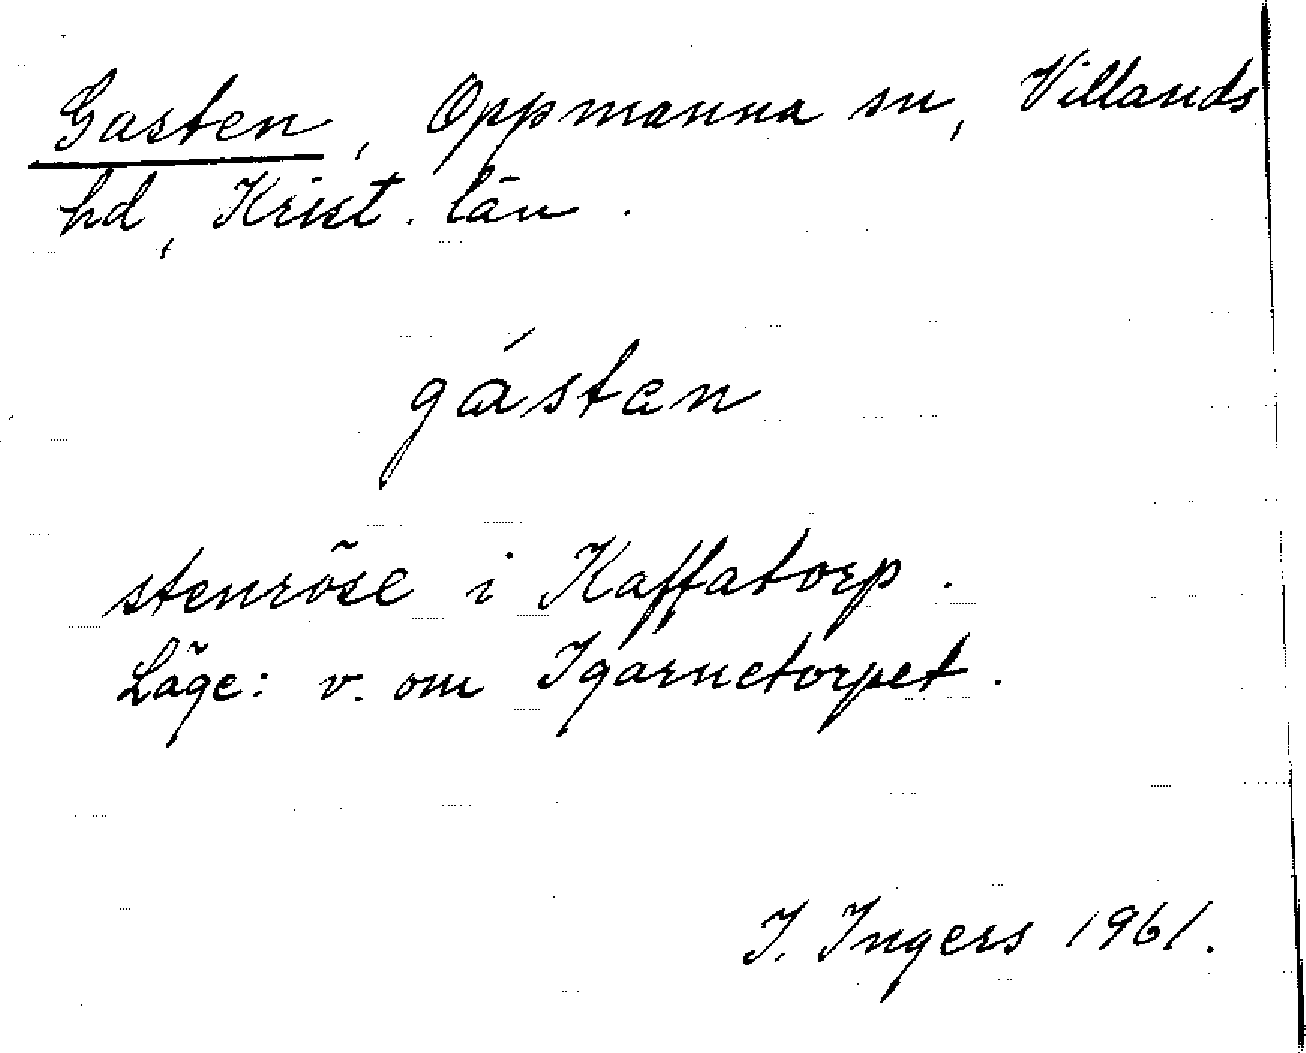 Gasten, Oppmanna sn, Villands
hd, Krist. län.
gástan
stenröse i Kaffatorp.
Läge: v. om Igarnetorpet.
I. Ingers 1961.